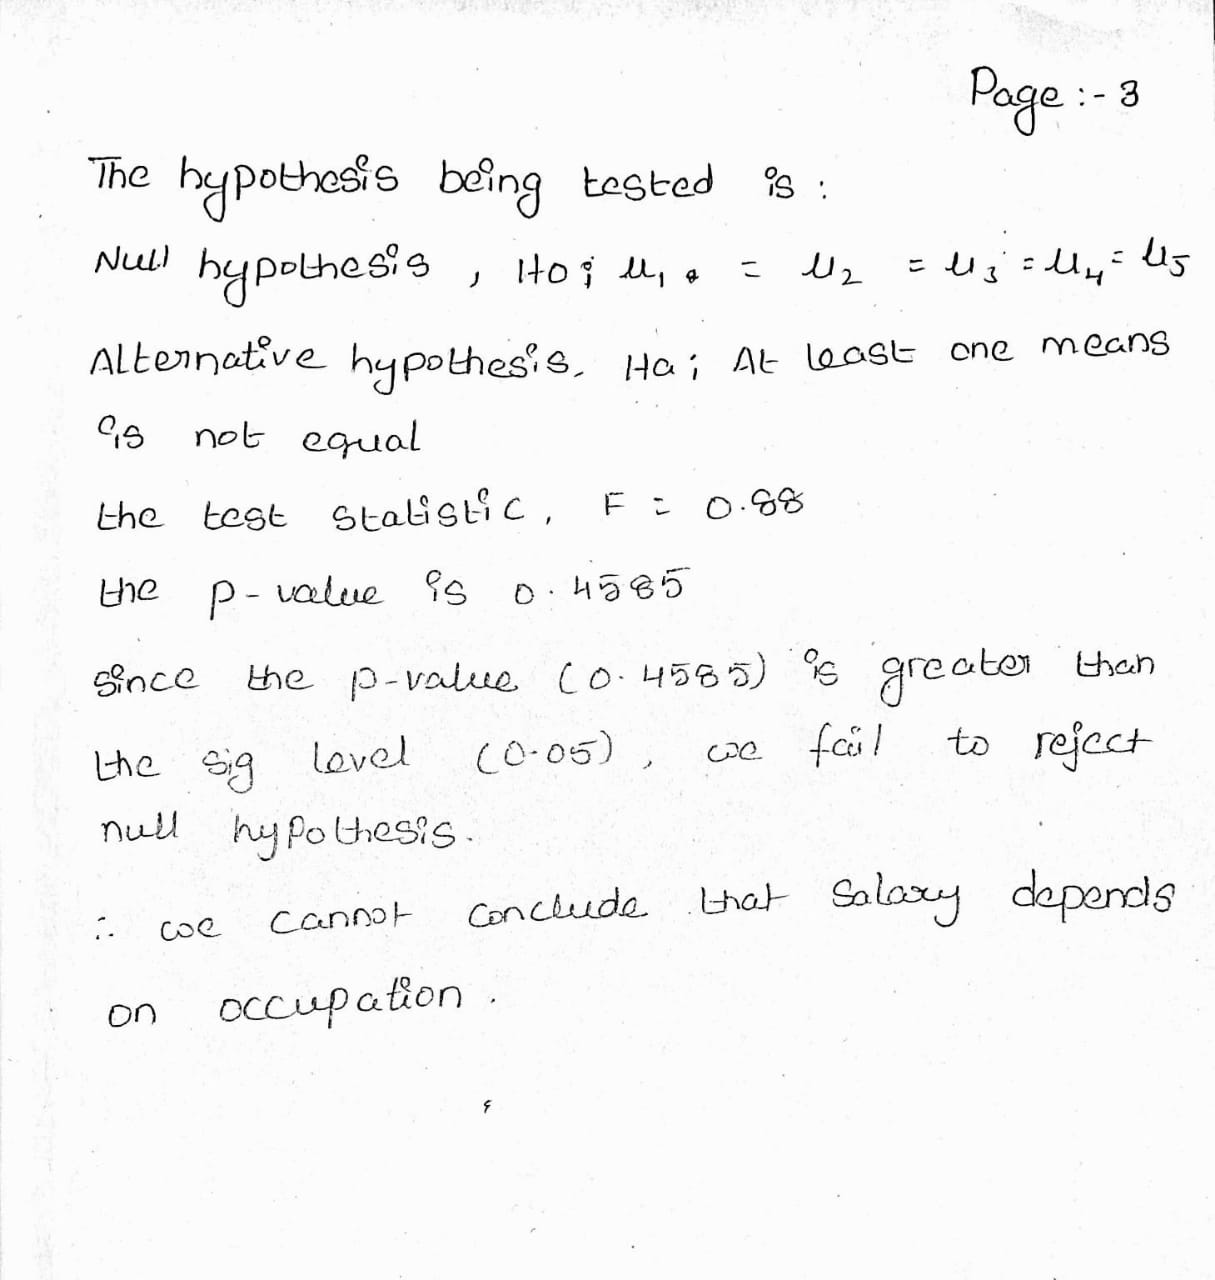 Page :- 3
The hypothesis being tested is :
Null hypothesis , Ho ; μ₁ = μ₂ = μ₃ = μ₄ = μ₅
Alternative hypothesis, Ha ; At least one means
is not equal
the test statistic, F = 0.88
the p-value is 0.4585
since the p-value (0.4585) is greater than
the sig level (0.05), we fail to reject
null hypothesis.
∴ we cannot conclude that Salary depends
on occupation.